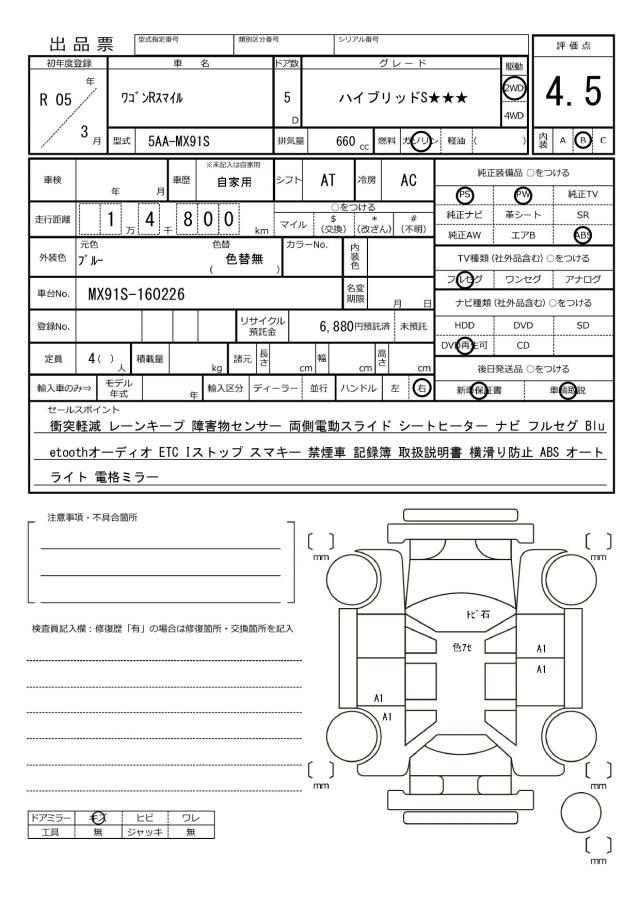 出品票
型式指定番号 類別区分番号 シリアル番号
評価点
初年度登録 車名 ドア数 グレード 駆動
R 05 年 3 月
ワゴンRスマイル
5 D
ハイブリッドS★★★
2WD
4WD
4.5
型式 5AA-MX91S 排気量 660 cc 燃料 ガソリン 軽油 ( )
内装 A B C
車検 年 月 車歴 ※未記入は自家用 自家用 シフト AT 冷房 AC
走行距離 1 万 4 千 8 0 0 km
○をつける
マイル $(交換) *(改ざん) #(不明)
外装色 元色 ブルー 色替 ( 色替無 ) カラーNo. 内装色
車台No. MX91S-160226 名変期限 月 日
登録No. リサイクル預託金 6,880円預託済 未預託
定員 4( )人 積載量 kg 諸元 長さ cm 幅 cm 高さ cm
輸入車のみ⇒ モデル年式 年 輸入区分 ディーラー 並行 ハンドル 左 右
純正装備品 ○をつける
PS PW 純正TV
純正ナビ 革シート SR
純正AW エアB ABS
TV種類(社外品含む)○をつける
フルセグ ワンセグ アナログ
ナビ種類(社外品含む)○をつける
HDD DVD SD
DVD再生可 CD
後日発送品 ○をつける
新車保証書 車輌取説
セールスポイント
衝突軽減 レーンキープ 障害物センサー 両側電動スライド シートヒーター ナビ フルセグ Blu
etoothオーディオ ETC Iストップ スマキー 禁煙車 記録簿 取扱説明書 横滑り防止 ABS オート
ライト 電格ミラー
注意事項・不具合箇所
検査員記入欄：修復歴「有」の場合は修復箇所・交換箇所を記入
ドアミラー キズ ヒビ ワレ
工具 無 ジャッキ 無
mm
mm
トビ石
色アセ
A1
A1
A1
A1
mm
mm
mm